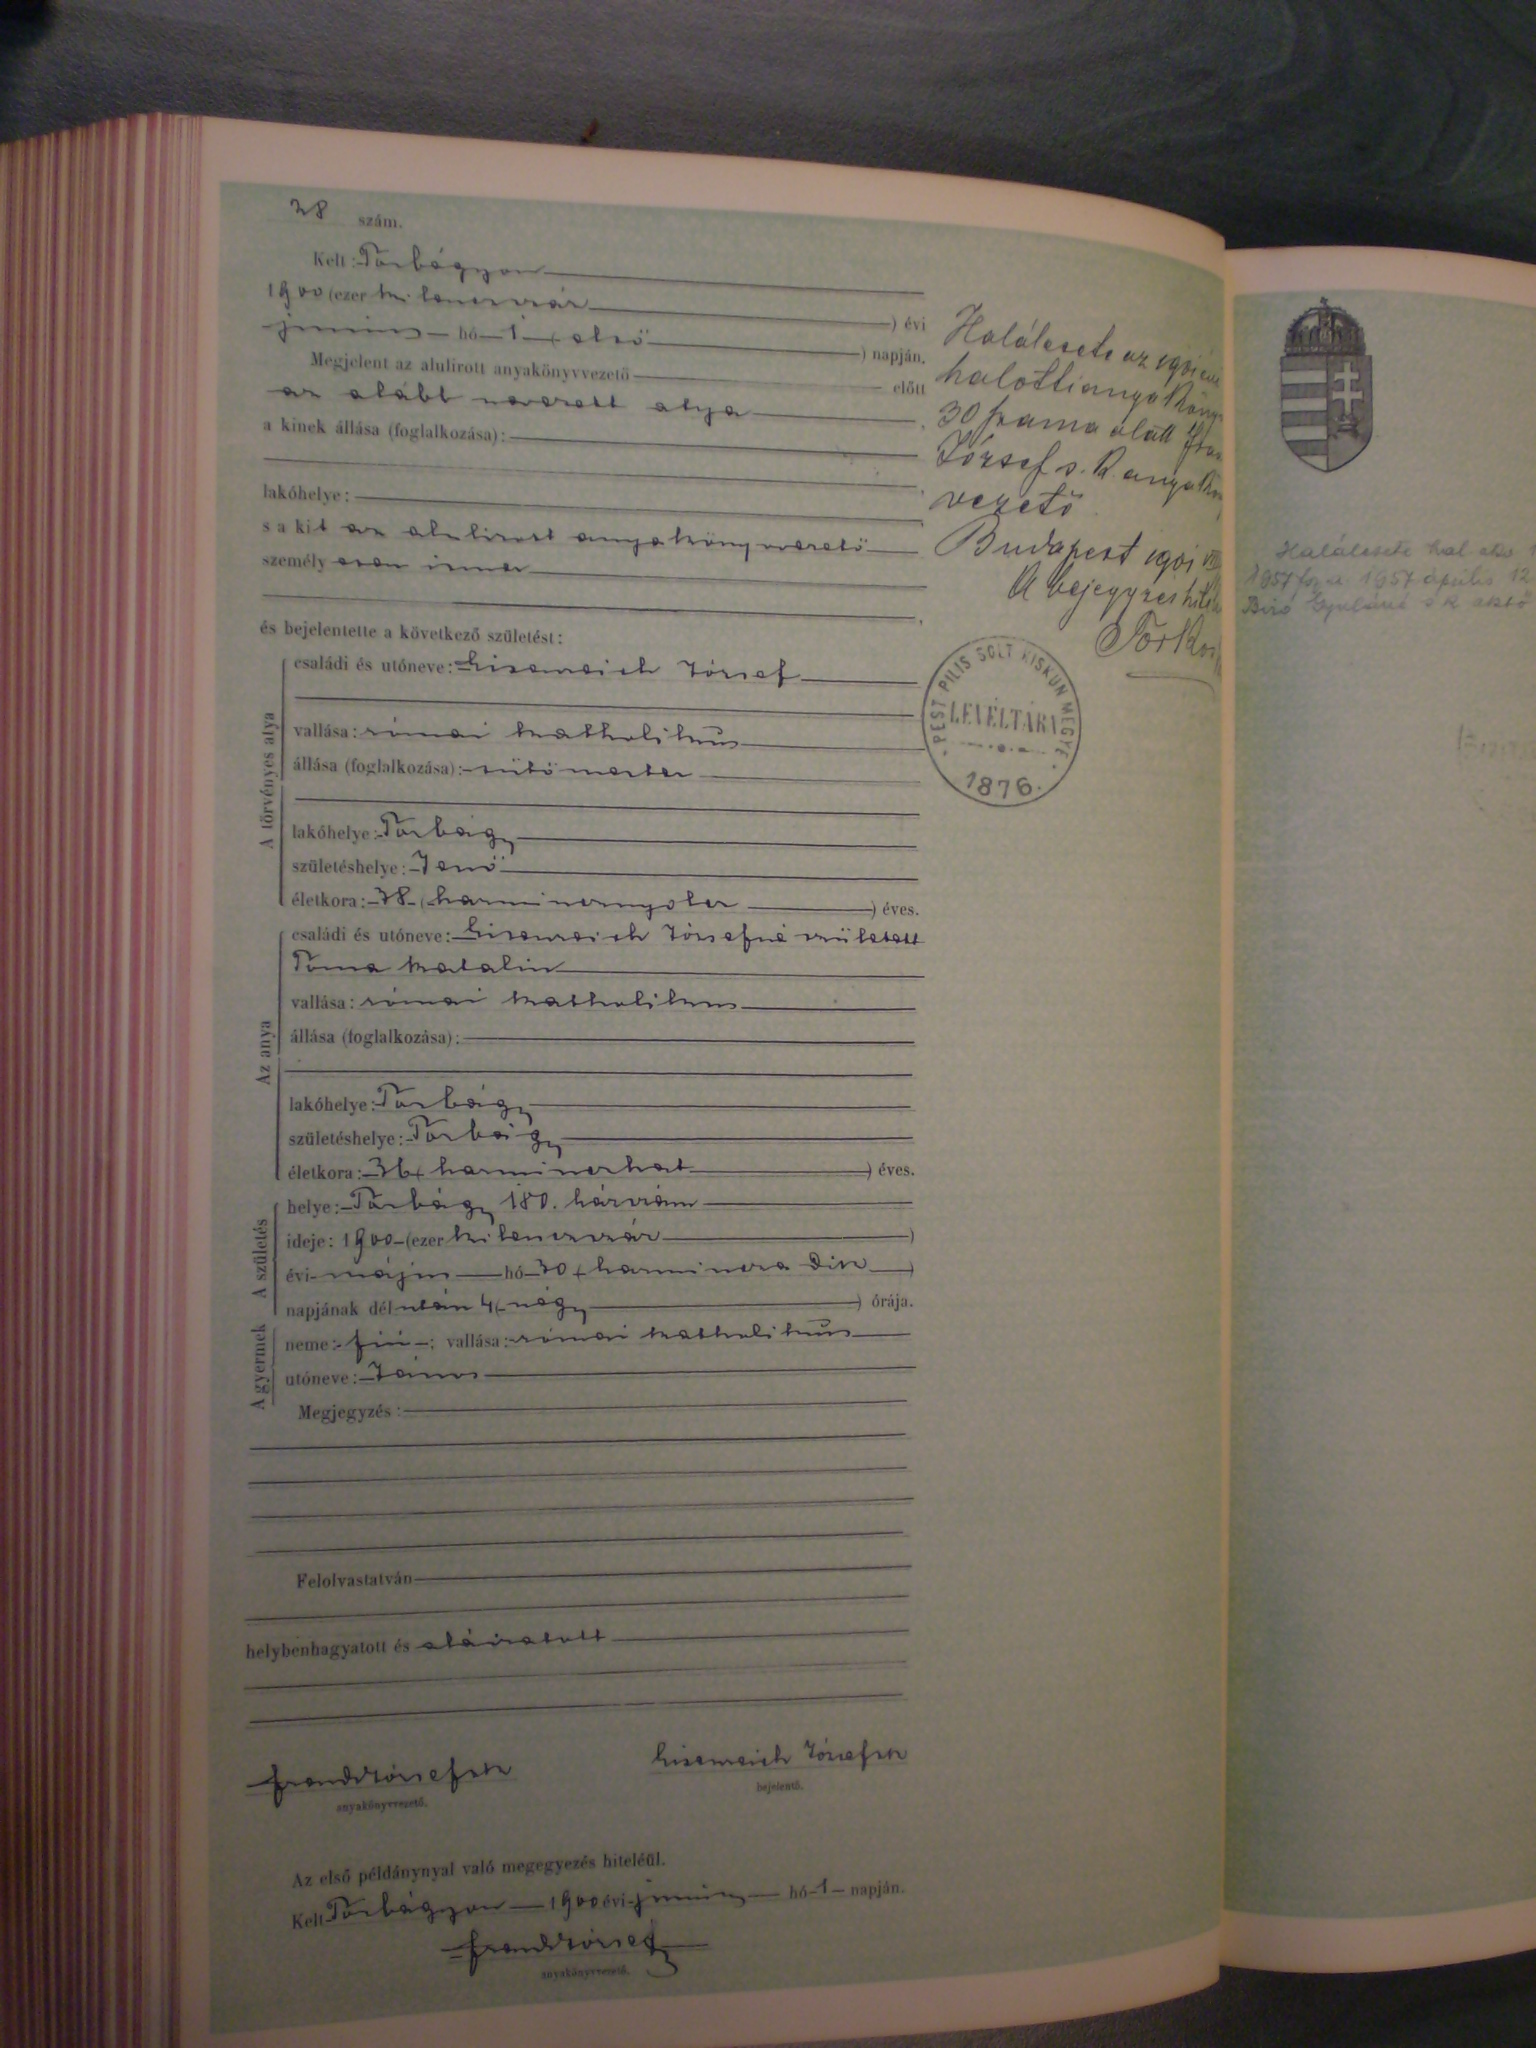 38 szám.
Kelt: Torbágyon
1900 (ezer kilenczszáz ) évi
junius hó 1 (első ) napján.
Megjelent az alulirott anyakönyvvezető előtt
az alább nevezett atya ,
a kinek állása (foglalkozása):
lakóhelye:
s a kit az alulirott anyakönyvvezető
személyesen ismer
és bejelentette a következő születést:
A törvényes atya
családi és utóneve: Eisenreich József
vallása: római katholikus
állása (foglalkozása): sütőmester
lakóhelye: Torbágy
születéshelye: Jenő
életkora: 38 (harmincznyolcz ) éves.
Az anya
családi és utóneve: Eisenreich Józsefné született
Toma Katalin
vallása: római katholikus
állása (foglalkozása):
lakóhelye: Torbágy
születéshelye: Torbágy
életkora: 36 (harminczhat ) éves.
A születés
helye: Torbágy 180. házszám
ideje: 1900 (ezer kilenczszáz )
évi május hó 30 (harminczadik )
napjának dél után 4 (négy ) órája.
A gyermek
neme: fiú ; vallása: római katholikus
utóneve: János
Megjegyzés:
Felolvastatván
helybenhagyatott és aláiratott
József sk
anyakönyvvezető.
Eisenreich József sk
bejelentő.
Az első példánynyal való megegyezés hiteléül.
Kelt Torbágyon 1900 évi junius hó 1 napján.
József
anyakönyvvezető.
Halálesete az 1901 évi
halotti anyaköny
30 száma alatt
József s. k. anyakön
vezető
Budapest 1901 VIII
A bejegyzés hitel
PEST PILIS SOLT KISKUN MEGYE
LEVÉLTÁRA
1876.
Halálesete hal. akv 1
1957 fsz a 1957 április 12
Biró Gyuláné s k akvő